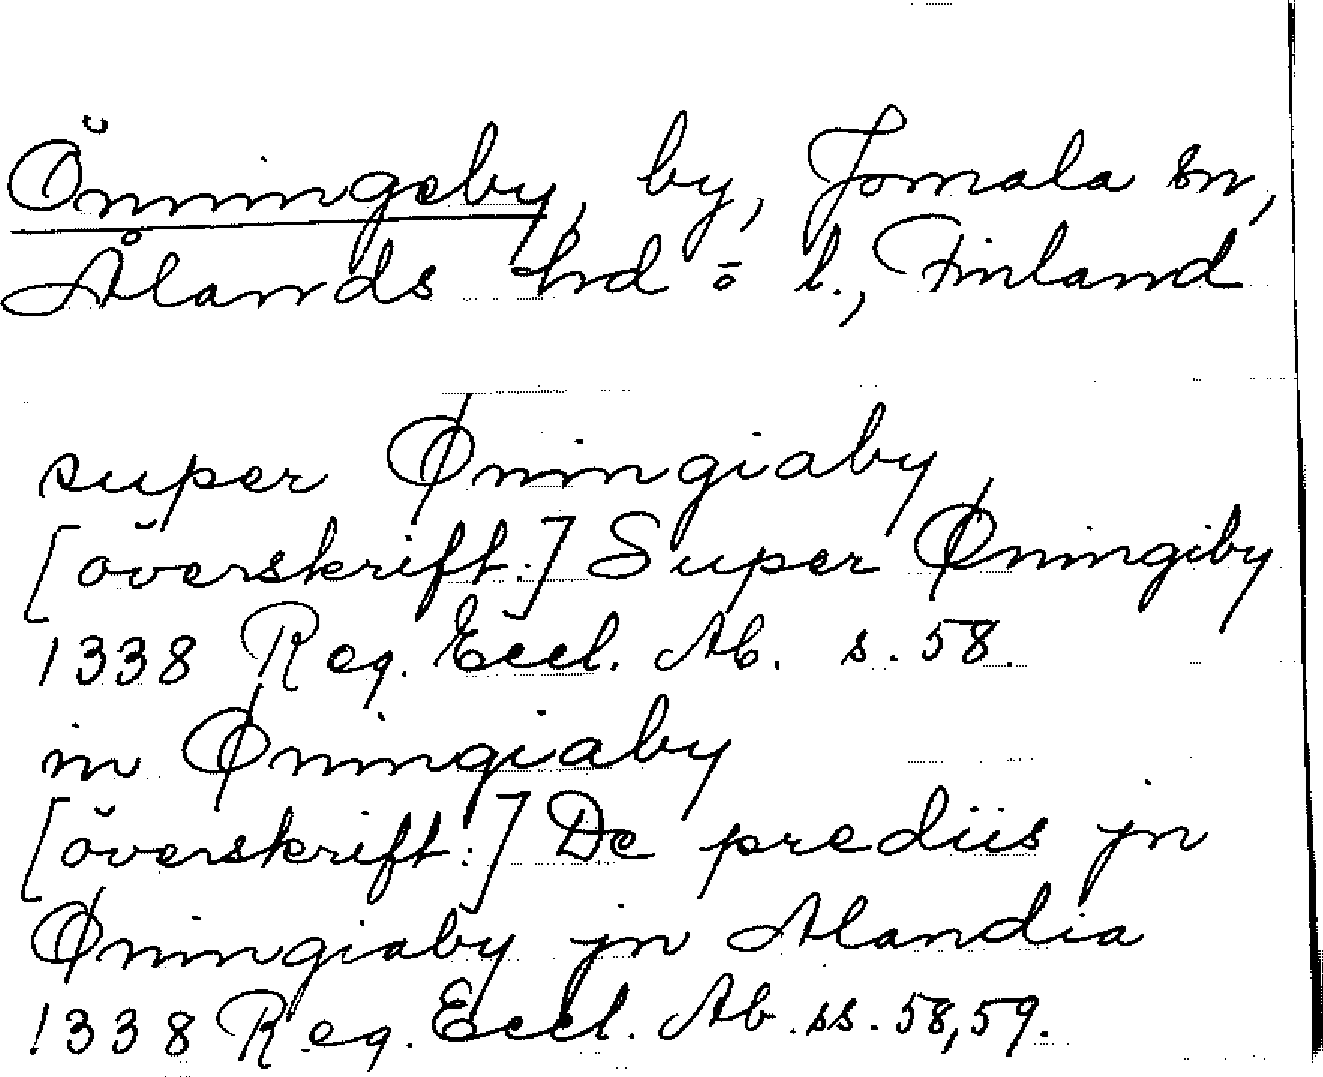 Önningeby, by, Jomala sn,
Ålands hd o l., Finland
super Øningiaby
[överskrift:] Super Øningiby
1338 Reg. Eccl. Ab. s. 58.
in Øningiaby
[överskrift:] De prediis jn
Øningiaby jn Alandia
1338 Reg. Eccl. Ab. ss. 58, 59.